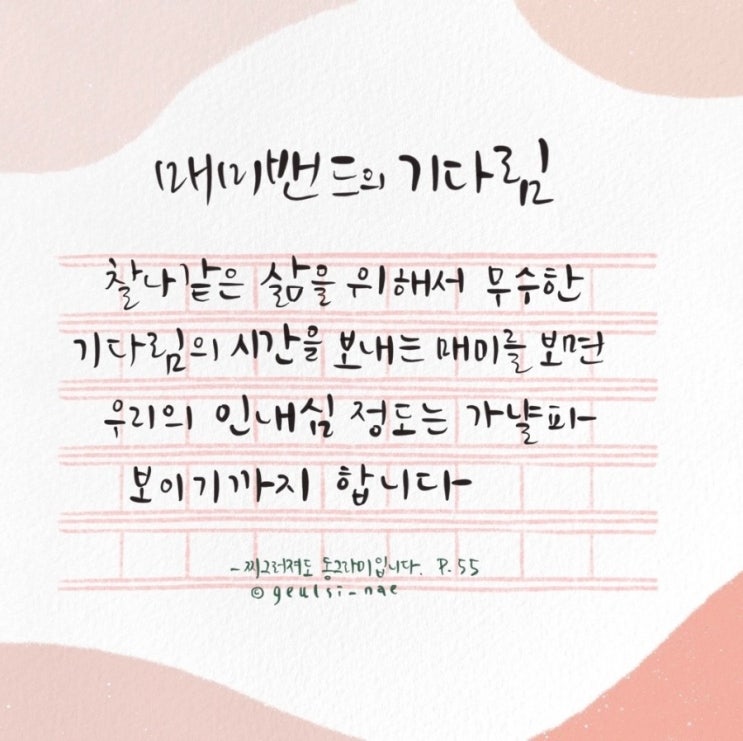 매미밴드의 기다림
찰나같은 삶을 위해서 무수한
기다림의 시간을 보내는 매미를 보면
우리의 인내심 정도는 가냘파
보이기까지 합니다
-찌그러져도 동그라미입니다. P.55
© geulsi_nae